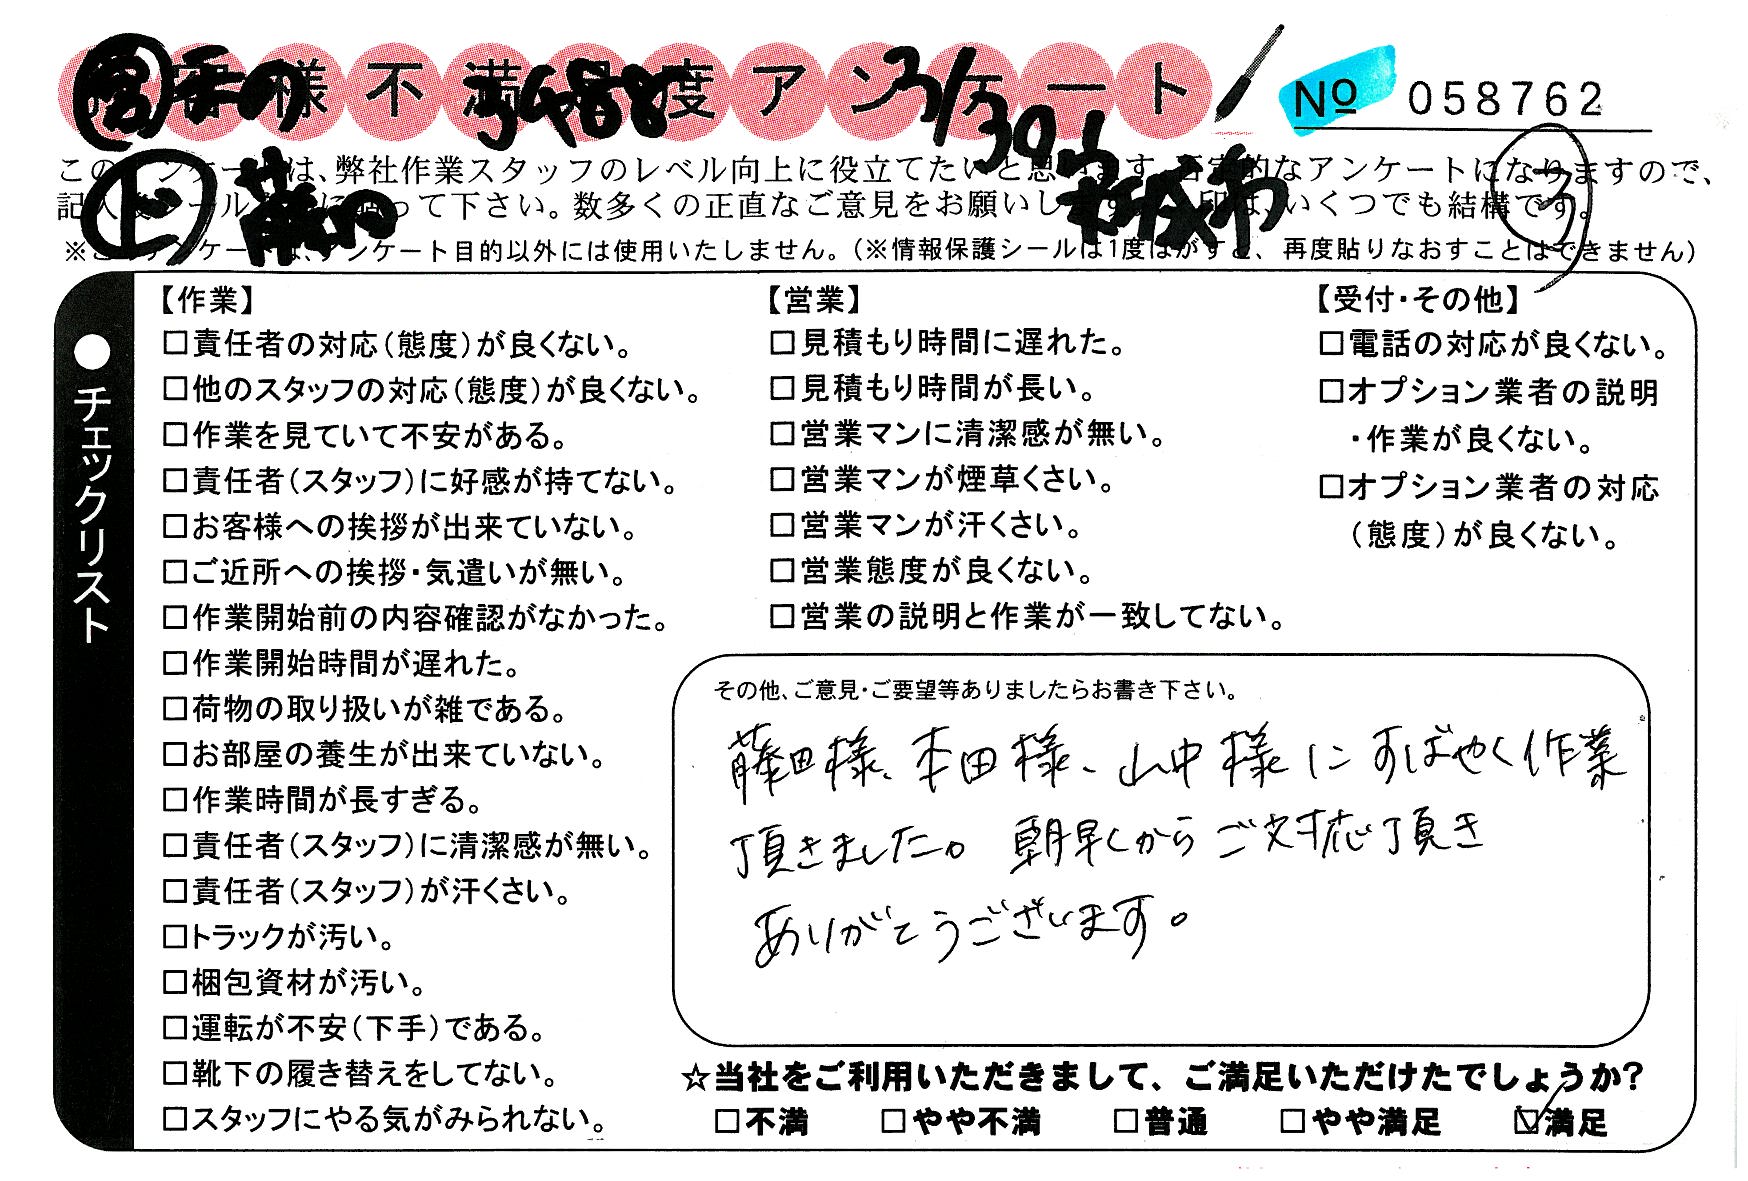 様不満足度アンケート
№ 058762
3/30
弊社作業スタッフのレベル向上に役立てたいと
なアンケートになりますので、
って下さい。数多くの正直なご意見をお願いし
いくつでも結構です。
3
アンケート目的以外には使用いたしません。(※情報保護シールは1度はがすと、再度貼りなおすことはできません)
●チェックリスト
【作業】
□責任者の対応(態度)が良くない。
□他のスタッフの対応(態度)が良くない。
□作業を見ていて不安がある。
□責任者(スタッフ)に好感が持てない。
□お客様への挨拶が出来ていない。
□ご近所への挨拶・気遣いが無い。
□作業開始前の内容確認がなかった。
□作業開始時間が遅れた。
□荷物の取り扱いが雑である。
□お部屋の養生が出来ていない。
□作業時間が長すぎる。
□責任者(スタッフ)に清潔感が無い。
□責任者(スタッフ)が汗くさい。
□トラックが汚い。
□梱包資材が汚い。
□運転が不安(下手)である。
□靴下の履き替えをしてない。
□スタッフにやる気がみられない。
【営業】
□見積もり時間に遅れた。
□見積もり時間が長い。
□営業マンに清潔感が無い。
□営業マンが煙草くさい。
□営業マンが汗くさい。
□営業態度が良くない。
□営業の説明と作業が一致してない。
【受付・その他】
□電話の対応が良くない。
□オプション業者の説明
・作業が良くない。
□オプション業者の対応
(態度)が良くない。
その他、ご意見・ご要望等ありましたらお書き下さい。
藤田様、本田様、山中様にすばやく作業
頂きました。朝早くからご対応頂き
ありがとうございます。
☆当社をご利用いただきまして、ご満足いただけたでしょうか?
□不満 □やや不満 □普通 □やや満足 ☑満足